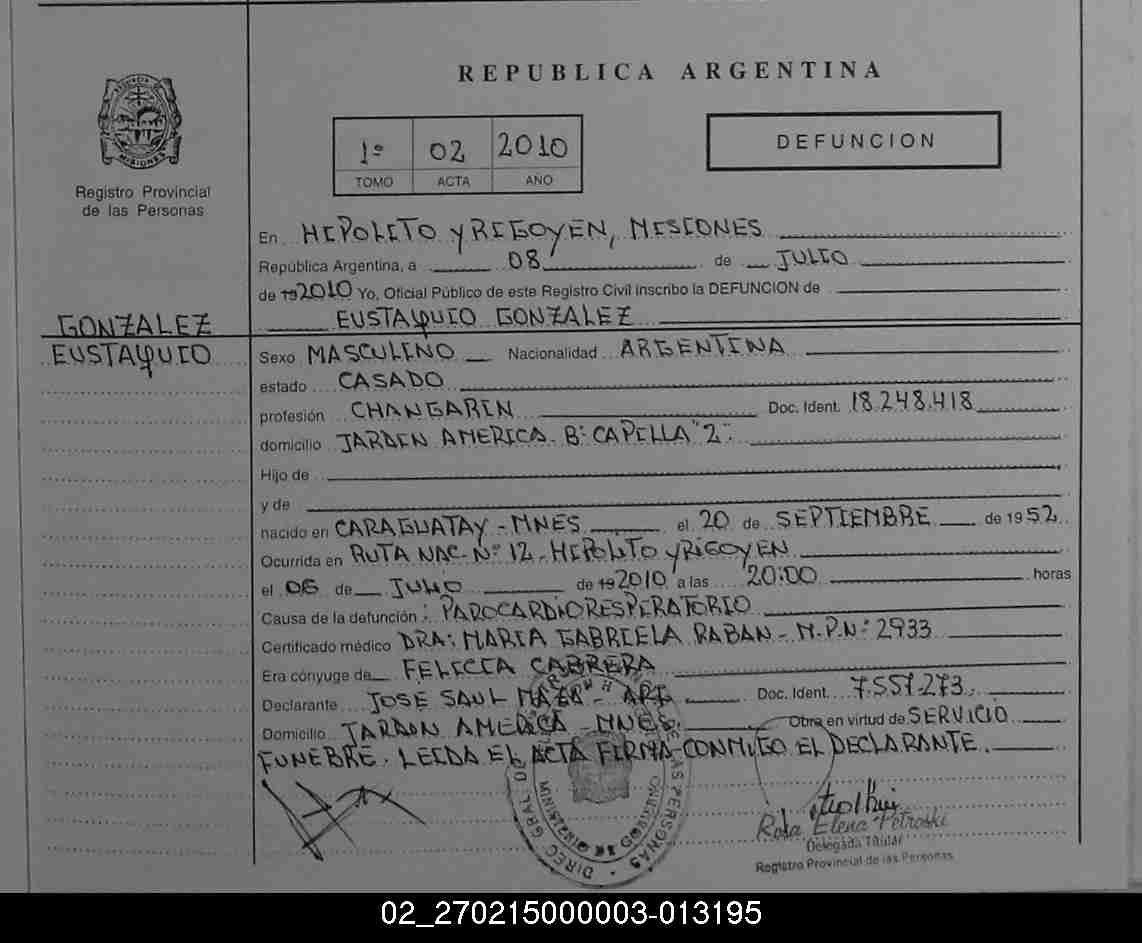 REPUBLICA ARGENTINA
MISIONES
Registro Provincial
de las Personas
1º 02 2010
TOMO ACTA AÑO
DEFUNCION
En HIPOLITO YRIGOYEN, MISIONES
República Argentina, a 08 de JULIO
de 19 2010 Yo, Oficial Público de este Registro Civil inscribo la DEFUNCION de
GONZALEZ
EUSTAQUIO GONZALEZ
EUSTAQUIO
Sexo MASCULINO Nacionalidad ARGENTINA
estado CASADO
profesión CHANGARIN Doc. Ident. 18.248.418
domicilio JARDIN AMERICA. Bº CAPILLA "2".
Hijo de
y de
nacido en CARAGUATAY - MNES el 20 de SEPTIEMBRE de 1952
Ocurrida en RUTA NAC. Nº 12 - HIPOLITO YRIGOYEN
el 06 de JULIO de 19 2010 a las 20:00 horas
Causa de la defunción: PAROCARDIORESPERATORIO
Certificado médico DRA: MARIA GABRIELA RABAN - M.P.Nº 2933
Era cónyuge de FELICIA CABRERA
Declarante JOSE SAUL MAZA - ARG. Doc. Ident. 7.557.273.
Domicilio JARDIN AMERICA - MNES. Obra en virtud de SERVICIO
FUNEBRE. LEIDA EL ACTA FIRMA CONMIGO EL DECLARANTE.
DIREC. GRAL. DE LAS PERSONAS
MINISTERIO DE GOBIERNO
Rosa Elena Petroski
Delegada Titular
Registro Provincial de las Personas
02_270215000003-013195